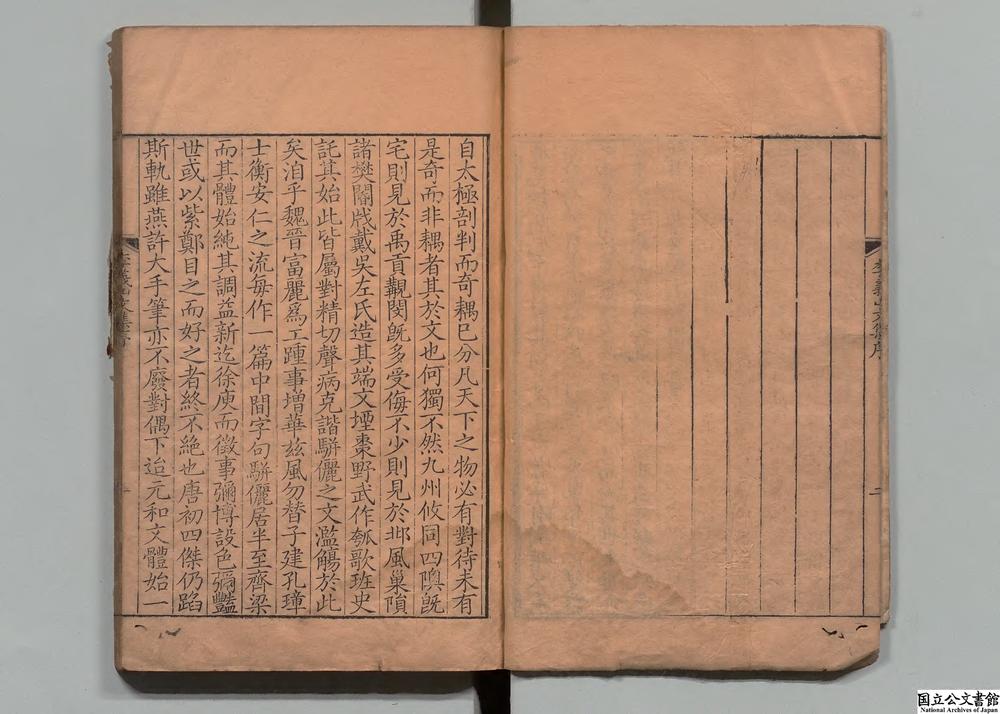 李義山文集序
自太極剖判而奇耦已分凡天下之物必有對待未有
是奇而非耦者其於文也何獨不然九州攸同四隩旣
宅則見於禹貢觀閔旣多受侮不少則見於邶風巢隕
諸樊閽戕戴吳左氏造其端文堙棗野武作瓠歌班史
託其始此皆屬對精切聲病克諧駢儷之文濫觴於此
矣洎乎魏晉富麗爲工踵事增華茲風勿替子建孔璋
士衡安仁之流每作一篇中間字句駢儷居半至齊梁
而其體始純其調益新迄徐庾而徵事彌博設色彌豔
世或以紫鄭目之而好之者終不絶也唐初四傑仍蹈
斯軌雖燕許大手筆亦不廢對偶下迨元和文體始一
国立公文書館
National Archives of Japan